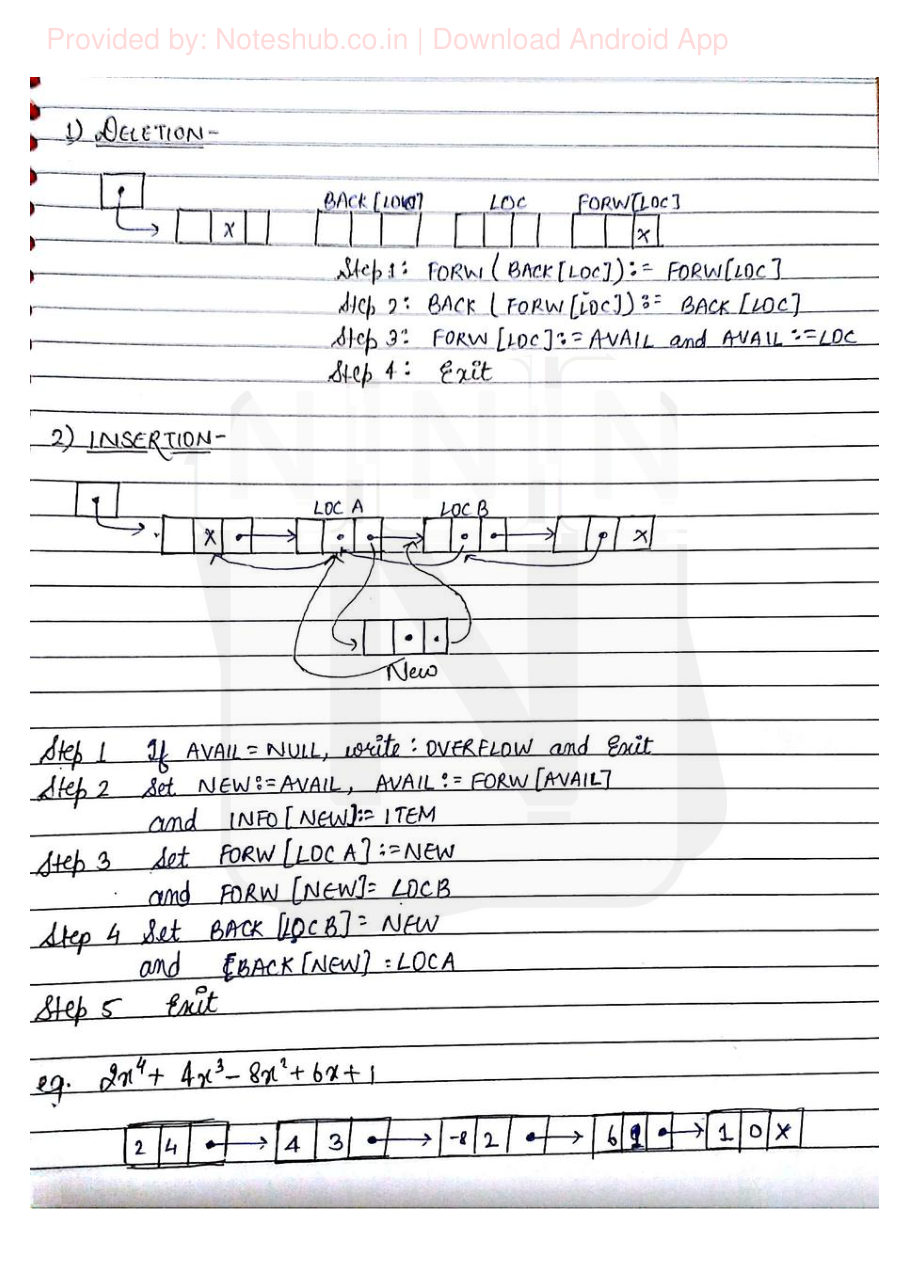 Provided by: Noteshub.co.in | Download Android App
1) DELETION-
BACK [LOC] LOC FORW[LOC]
X X
Step 1: FORW (BACK[LOC]):= FORW[LOC]
Step 2: BACK (FORW[LOC]):= BACK [LOC]
Step 3: FORW [LOC]:= AVAIL and AVAIL :=LOC
Step 4: Exit
2) INSERTION-
LOC A LOC B
X X
New
Step 1 If AVAIL = NULL, write : OVERFLOW and Exit
Step 2 Set NEW:=AVAIL, AVAIL := FORW [AVAIL]
and INFO [NEW]:= ITEM
Step 3 Set FORW [LOC A] :=NEW
and FORW [NEW]= LOCB
Step 4 Set BACK [LOCB]= NEW
and BACK [NEW] =LOCA
Step 5 Exit
eg. 2x⁴ + 4x³ - 8x² + 6x + 1
2 4 4 3 -8 2 6 1 1 0 X